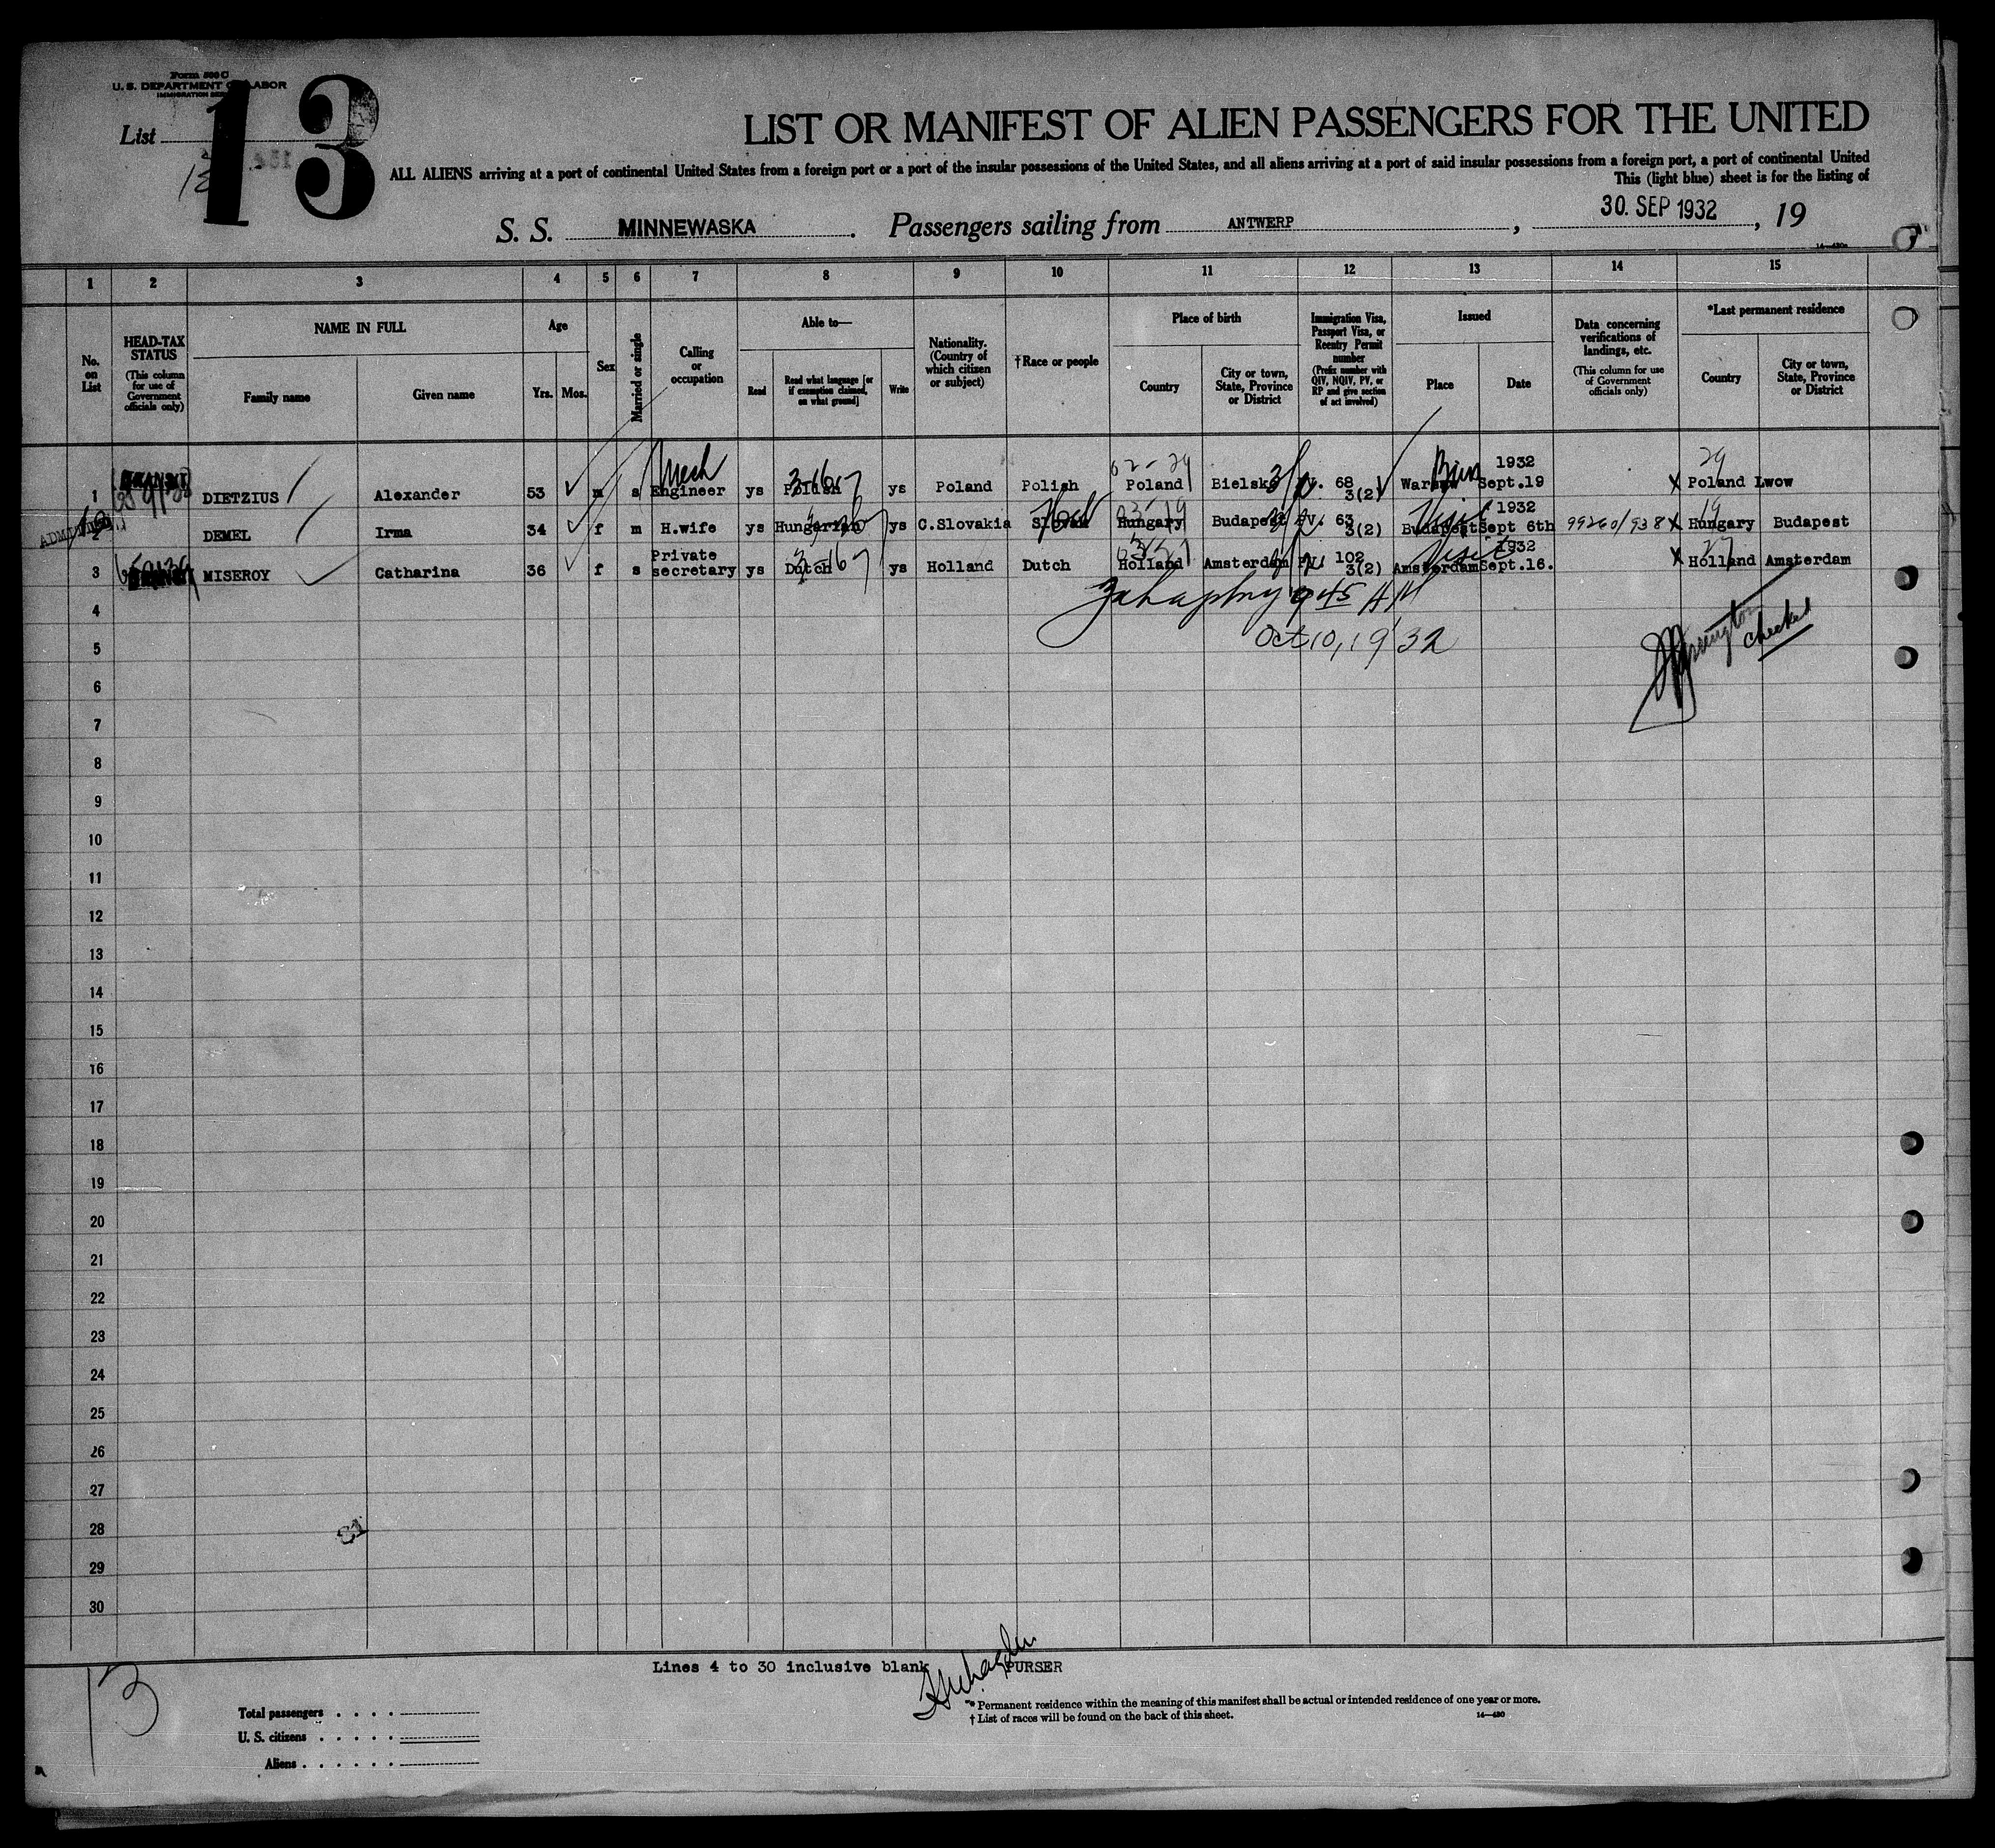 Form 500 C
U. S. DEPARTMENT OF LABOR
IMMIGRATION SERVICE
List
13
LIST OR MANIFEST OF ALIEN PASSENGERS FOR THE UNITED
ALL ALIENS arriving at a port of continental United States from a foreign port or a port of the insular possessions of the United States, and all aliens arriving at a port of said insular possessions from a foreign port, a port of continental United
This (light blue) sheet is for the listing of
S. S. MINNEWASKA. Passengers sailing from ANTWERP, 30. SEP 1932, 19
1 2 3 4 5 6 7 8 9 10 11 12 13 14 15
No. on List
HEAD-TAX STATUS (This column for use of Government officials only)
NAME IN FULL
Family name
Given name
Age
Yrs. Mos.
Sex
Married or single
Calling or occupation
Able to—
Read
Read what language [or if exemption claimed, on what ground]
Write
Nationality. (Country of which citizen or subject)
†Race or people
Place of birth
Country
City or town, State, Province or District
Immigration Visa, Passport Visa, or Reentry Permit number (Prefix number with QIV, NQIV, PV, or RP and give section of act involved)
Issued
Place
Date
Data concerning verifications of landings, etc. (This column for use of Government officials only)
*Last permanent residence
Country
City or town, State, Province or District
1 TRANSIT DIETZIUS Alexander 53 m s Mech Engineer ys Polish ys Poland Polish Poland Bielsko PV. 68 3(2) Warsaw 1932 Sept.19 Poland Lwow
2 ADMITTED DEMEL Irma 34 f m H.wife ys Hungarian ys C.Slovakia Slovak Hungary Budapest PV. 63 3(2) Budapest Visit 1932 Sept 6th 99260/938 Hungary Budapest
3 MISEROY Catharina 36 f s Private secretary ys Dutch ys Holland Dutch Holland Amsterdam PV. 102 3(2) Amsterdam Visit 1932 Sept.16. Holland Amsterdam
4 9 45 AM
5 Oct 10, 1932 checked
6
7
8
9
10
11
12
13
14
15
16
17
18
19
20
21
22
23
24
25
26
27
28
29
30
Lines 4 to 30 inclusive blank PURSER
13
Total passengers
U. S. citizens
Aliens
* Permanent residence within the meaning of this manifest shall be actual or intended residence of one year or more.
† List of races will be found on the back of this sheet.
14—430